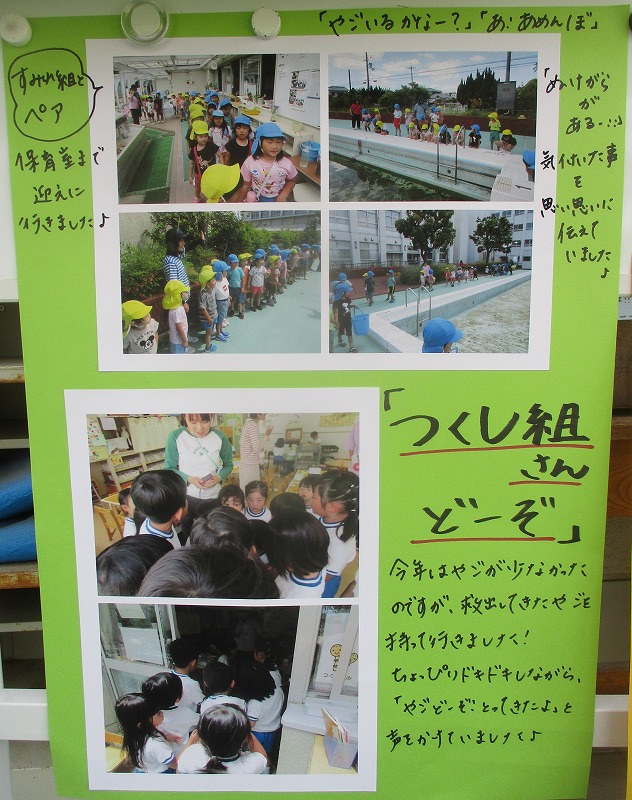 「やごいるかなー?」「あ、あめんぼ」
すみれ組と
ペア
保育室まで
迎えに
行きました♪
「ぬけがら
が
ある…」
気付いた事
を
思い思いに
伝えて
いました♪
「つくし組
さん
どーぞ」
今年はヤゴが少なかった
のですが、救出してきたヤゴを
持って行きました!
ちょっぴりドキドキしながら、
「ヤゴどーぞ!とってきたよ」と
声をかけていました♪